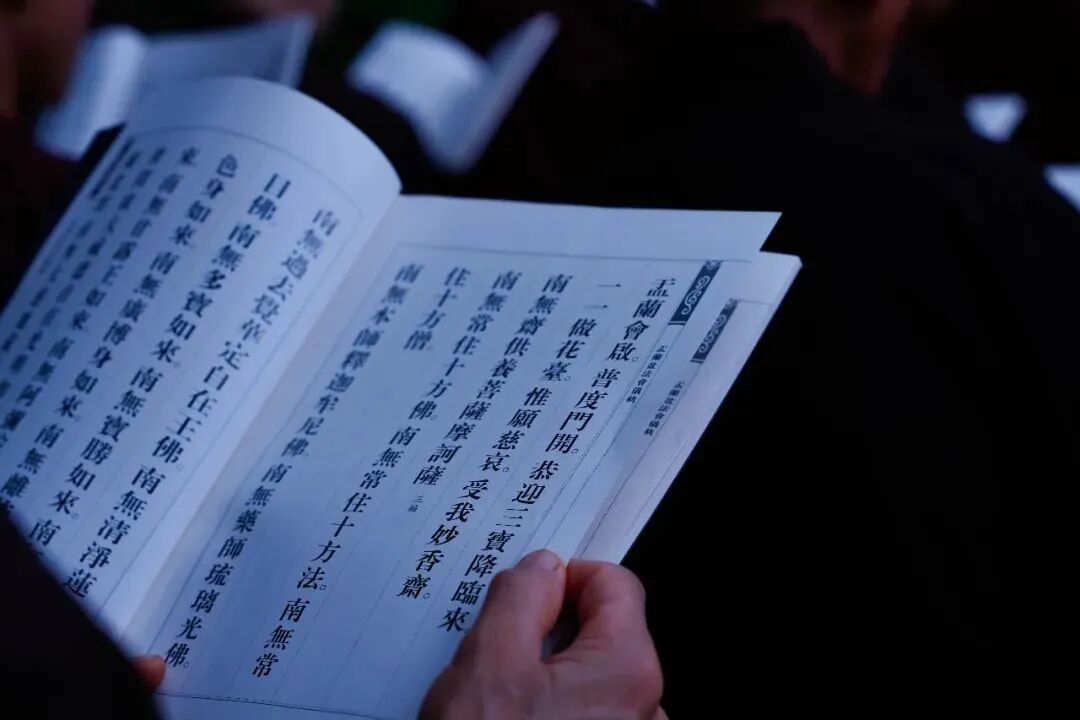 盂蘭盆法會儀軌
盂蘭盆法會儀軌
盂蘭會啟。普度門開。恭迎三寶降臨來
一一做花臺。惟願慈哀。受我妙香齋。
南無齋供養菩薩摩訶薩
南無常住十方佛。南無常住十方法。南無常
住十方僧。
南無本師釋迦牟尼佛。南無藥師琉璃光佛。
南無過去覺華定自在王佛。南無清淨蓮
目佛。南無多寶如來。南無寶勝如來。南
色身如來。南無廣博身如來。南無離
來。南無甘露王如來。南無阿彌